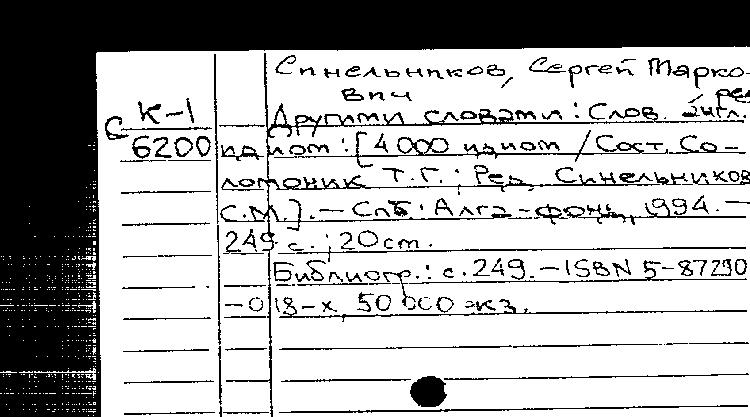 Синельников, Сергей Марко-
вич ред
К-1 Другими словами: Слов. англ.
С 6200 идиом: [4000 идиом / Сост. Со-
ломоник Т.Г.; Ред. Синельников
С.М.]. — Спб: Алга-фонд, 1994. —
249 с.; 20 cm.
Библиогр.: с. 249. — ISBN 5-87290
-018-х, 50 000 экз.